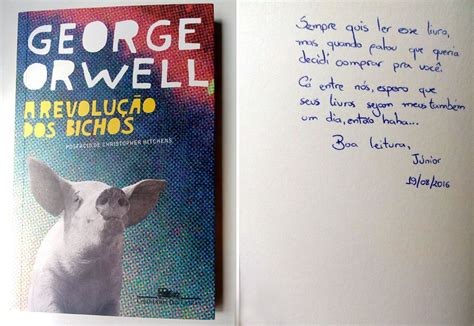 GEORGE
ORWELL
A REVOLUÇÃO
DOS BICHOS
POSFÁCIO DE CHRISTOPHER HITCHENS
Sempre quis ler esse livro,
mas quando falou que queria
decidi comprar pra você.
Cá entre nós, espero que
seus livros sejam meus também
um dia, então haha...
Boa leitura,
Júnior
19/08/2016